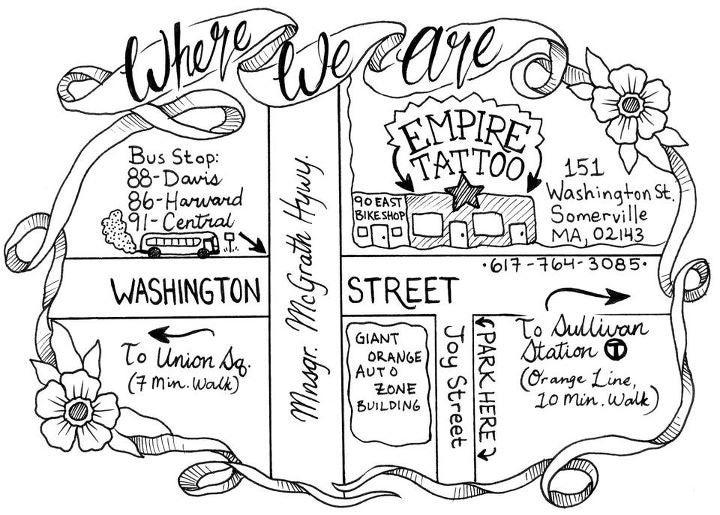 Where We are
EMPIRE
TATTOO
90 EAST
BIKE SHOP
151
Washington St.
Somerville
MA, 02143
·617-764-3085·
Bus Stop:
88-Davis
86-Harvard
91-Central
WASHINGTON STREET
Mnsgr. McGrath Hgwy.
To Union Sq.
(7 Min. Walk)
GIANT
ORANGE
AUTO
ZONE
BUILDING
Joy Street
PARK HERE
To Sullivan
Station T
(Orange Line,
10 Min. Walk)